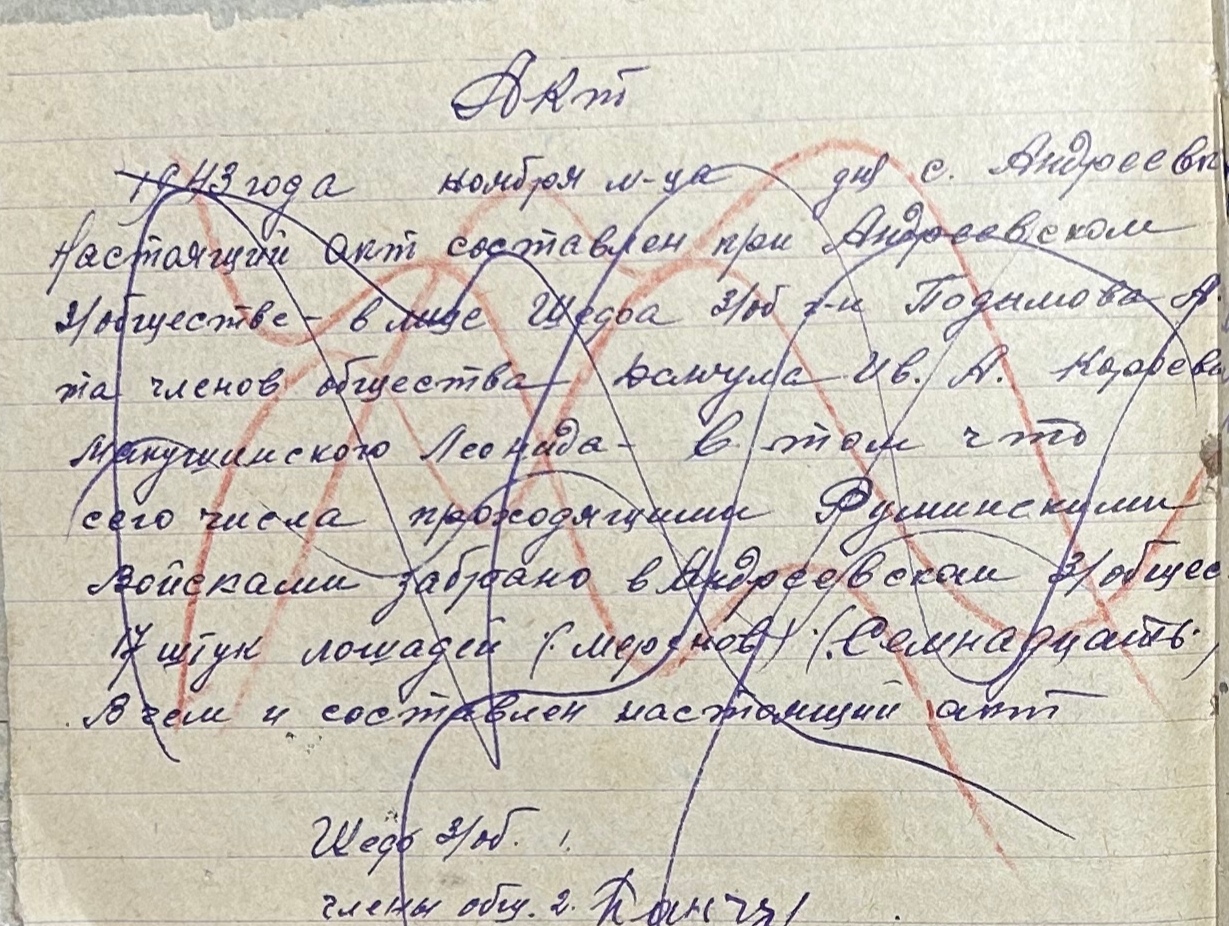 Акт
1943 года ноября м-ца дня с. Андреевк
Настоящий акт составлен при Андреевском
З/обществе - в лице Шефа З/об г-н Подымова А
та членов общества Ив. А.
Манушинского Леонида - в том что
сего числа проходящими Румынскими
войсками забрано в Андреевском З/общес
17 штук лошадей (меренов) (Семнадцать)
В чем и составлен настоящий акт
Шеф З/об. 1.
члены общ. 2.